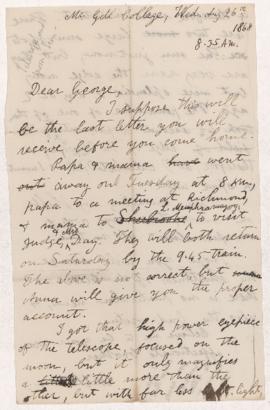 McGill College, Wed. 26th
1868
8.35 A.M.
Dear George,
I suppose this will
be the last letter you will
receive before you come home.
Papa & mama have went
out away on Tuesday at 8 A.M.,
papa to a meeting at Richmond,
& mama to Sherbrooke to visit
Judge & Mrs Day. They will both return
on Saturday by the 9.45 train.
The above is not correct, but
Anna will give you the proper
account.
I got that high power eyepiece
of the telescope focused on the
moon, but it only magnifies
a little little more than the
other, but with far less light,